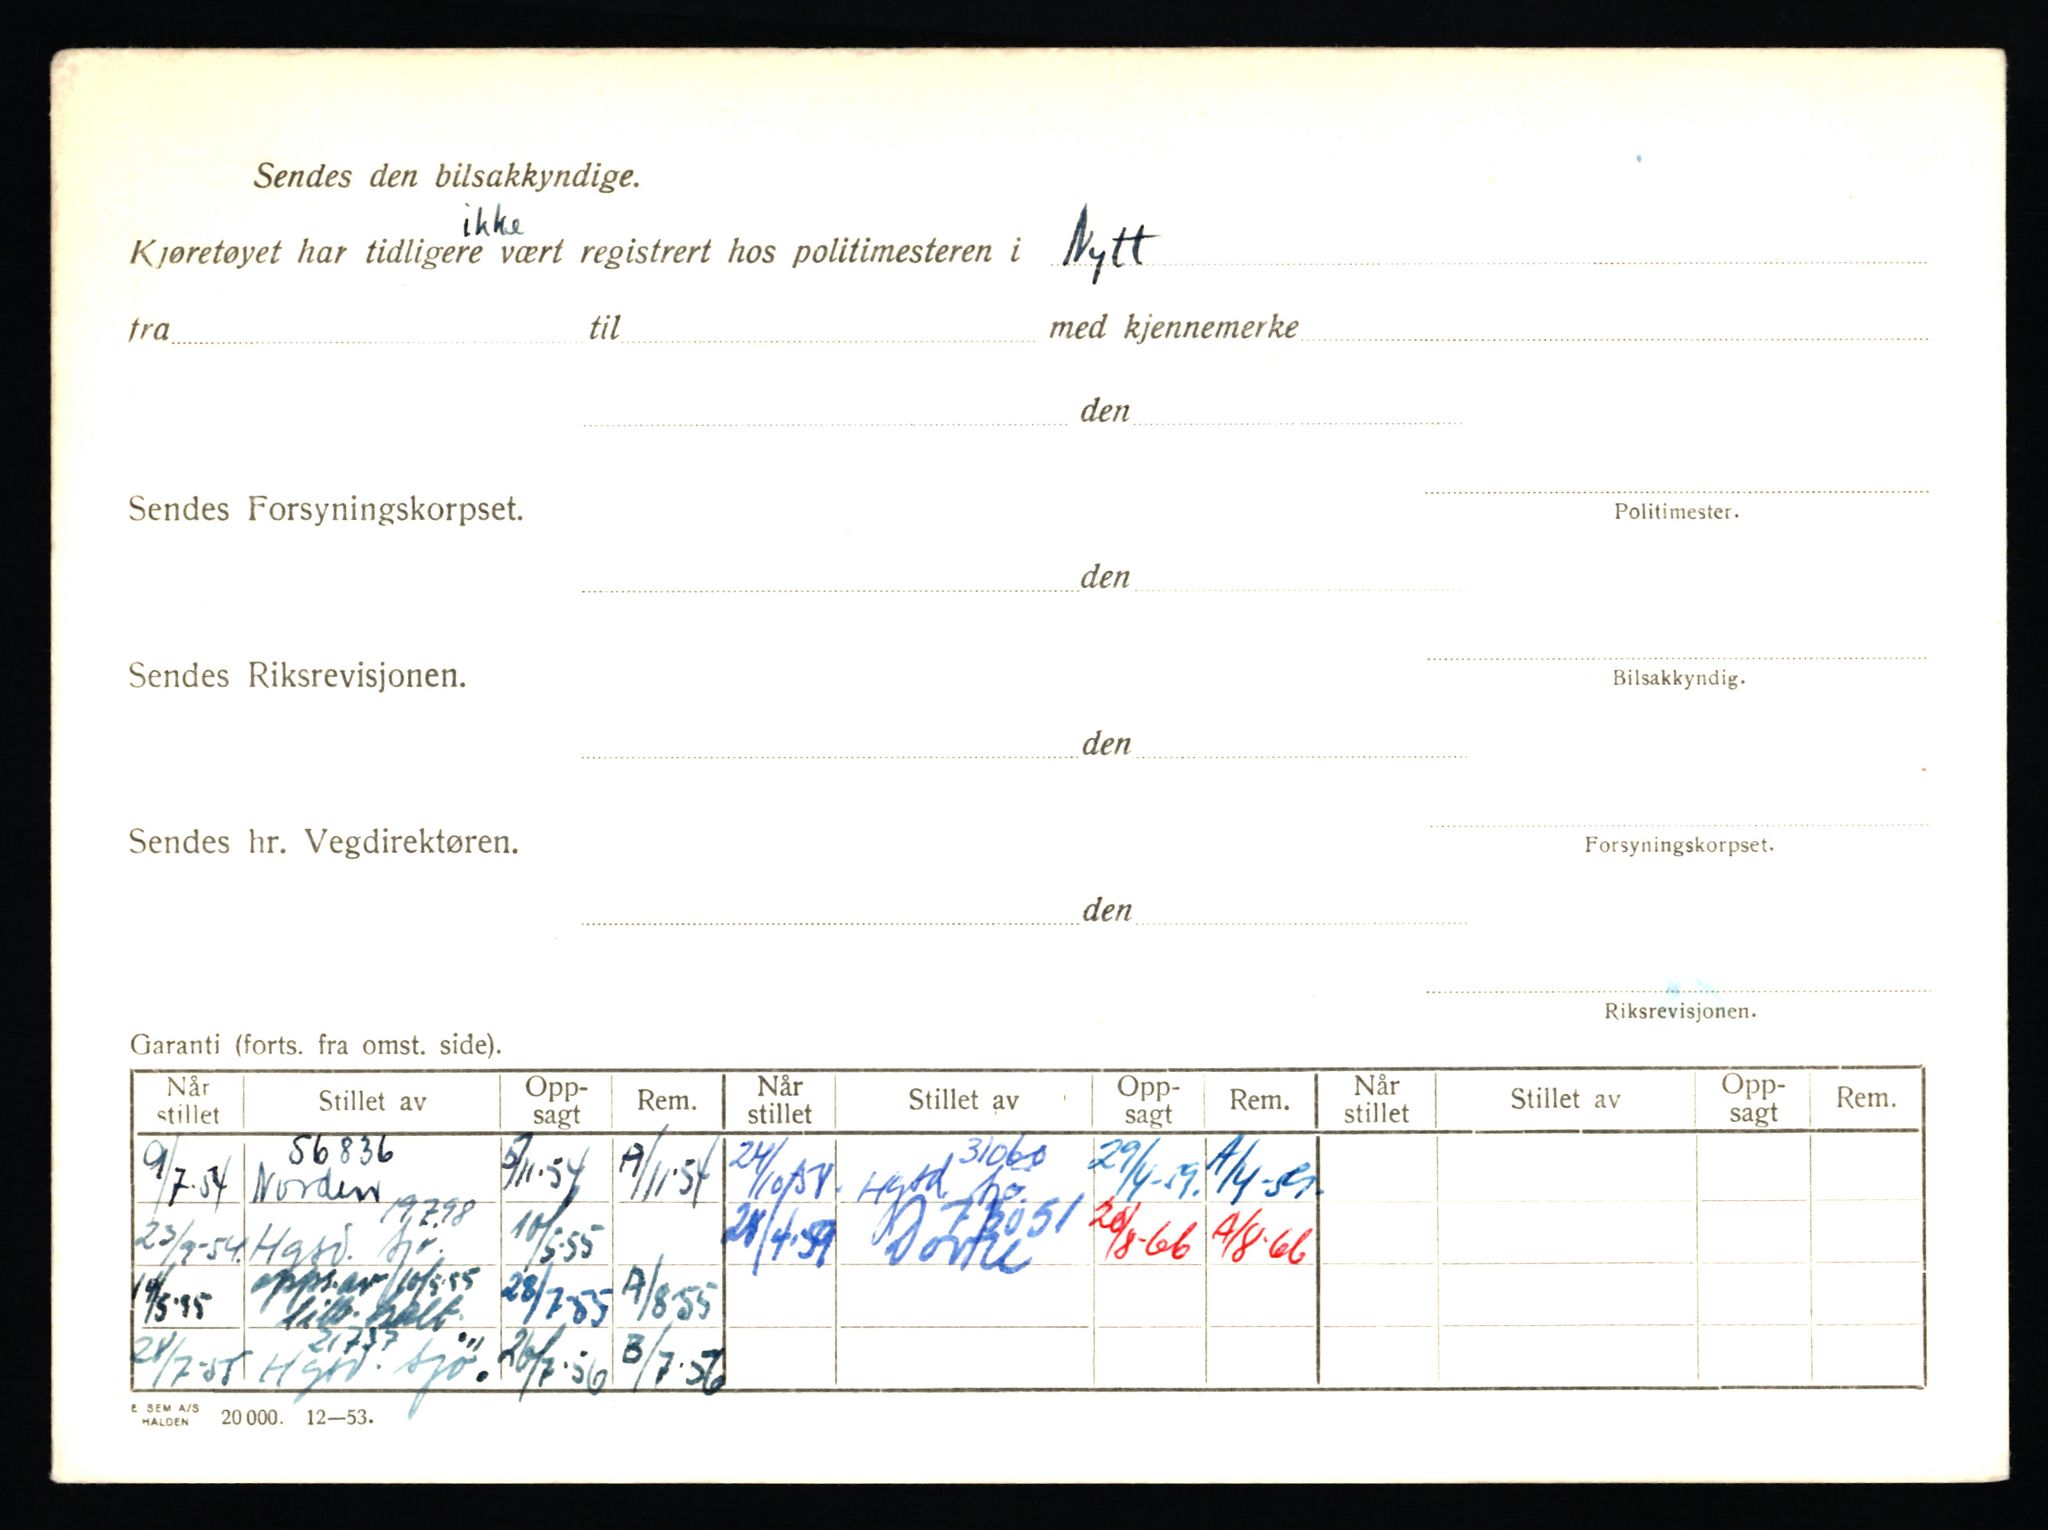 Sendes den bilsakkyndige.
ikke
Kjøretøyet har tidligere vært registrert hos politimesteren i Nytt
fra til med kjennemerke
den
Sendes Forsyningskorpset.
Politimester.
den
Sendes Riksrevisjonen.
Bilsakkyndig.
den
Sendes hr. Vegdirektøren.
Forsyningskorpset.
den
Riksrevisjonen.
Garanti (forts. fra omst. side).
Når stillet Stillet av Opp-sagt Rem. Når stillet Stillet av Opp-sagt Rem. Når stillet Stillet av Opp-sagt Rem.
9/7-54 56836 Norden 5/11-54 A/11-54 24/10-58. 31060 Hgsd. 29/4-59. A/4-59.
23/9-54. 19798 Hgsd. sjø. 10/5-55 28/4-59 73051 26/8-66 A/8-66
10/5-55 opps. av 10/5-55 28/7-55 A/8-55
28/7-55 21737 Hgsd. sjø. 26/7-56 B/7-56
E SEM A/S
HALDEN 20 000. 12—53.